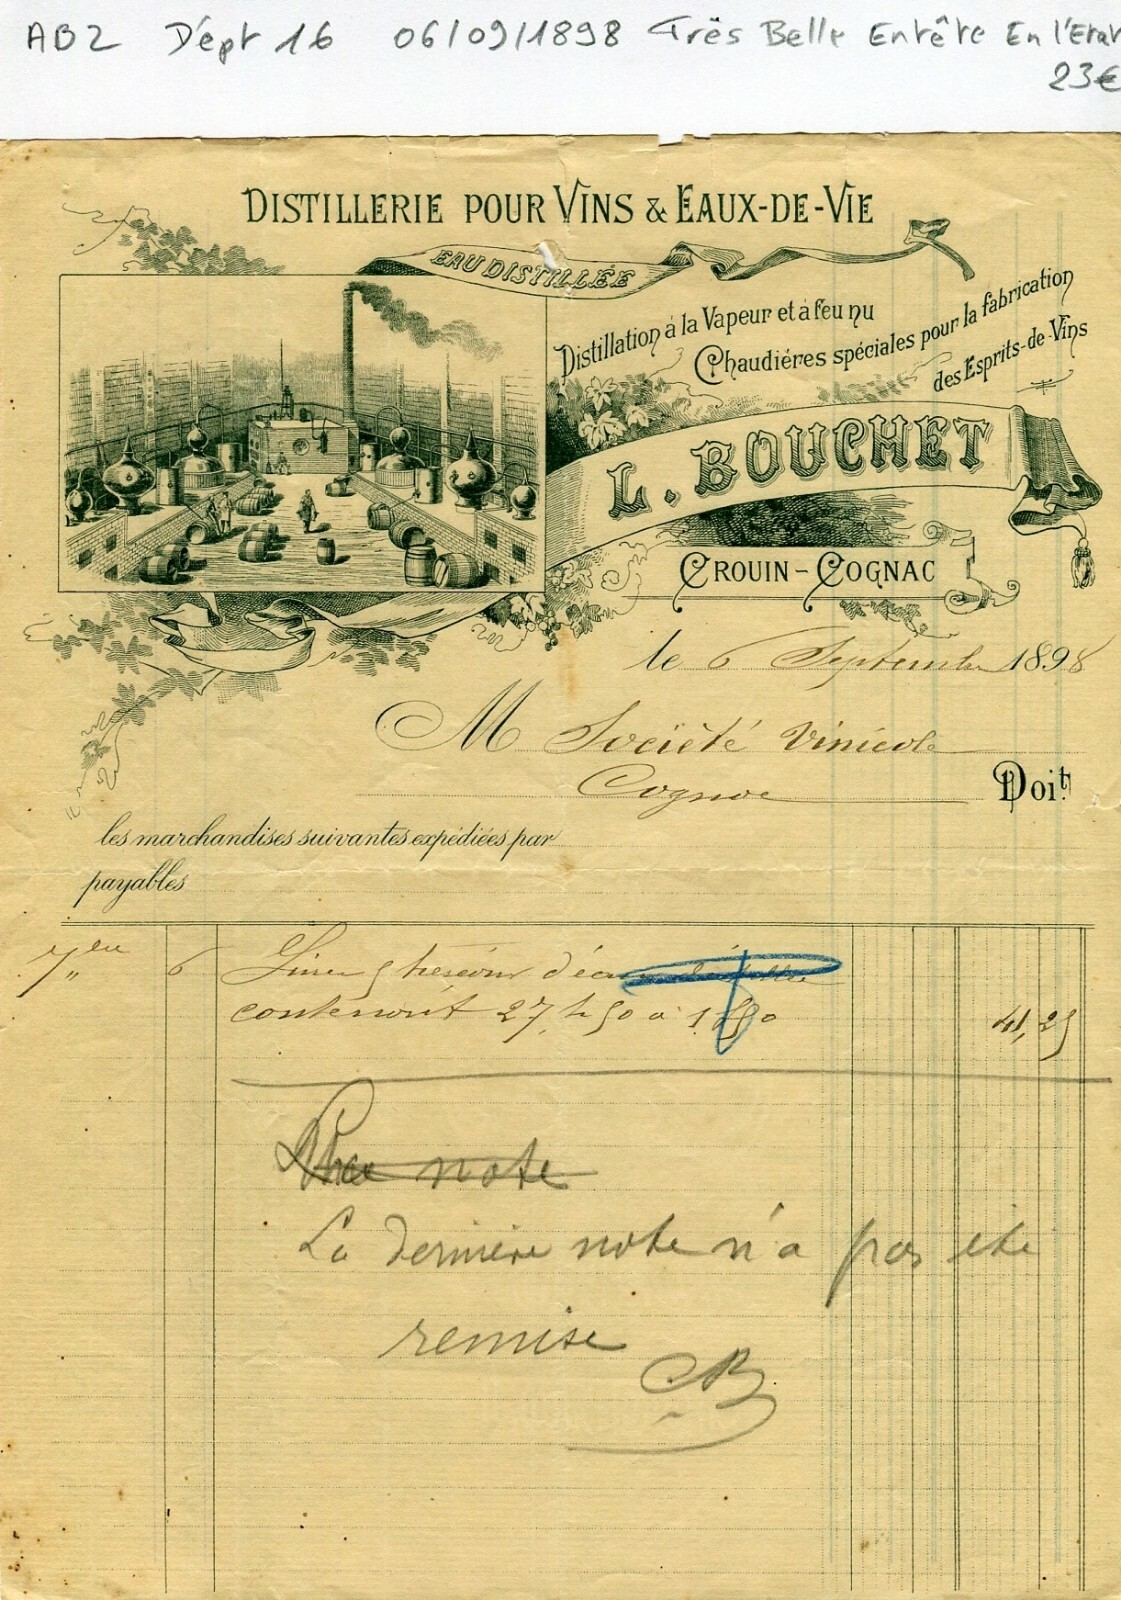 AB2 Dépt 16 06/09/1898 Très Belle Entête En l'Etat
23€
DISTILLERIE POUR VINS & EAUX-DE-VIE
EAU DISTILLÉE
Distillation à la Vapeur et à feu nu
Chaudiéres spéciales pour la fabrication
des Esprits-de-Vins
L. BOUCHET
CROUIN-COGNAC
le 6 Septembre 1898
M Société Vinicole
Cognac
Doit
les marchandises suivantes expédiées par
payables
7bre 6
contenant 27,h50 à 1.50 41,25
note
La dernière note n'a pas été
remise